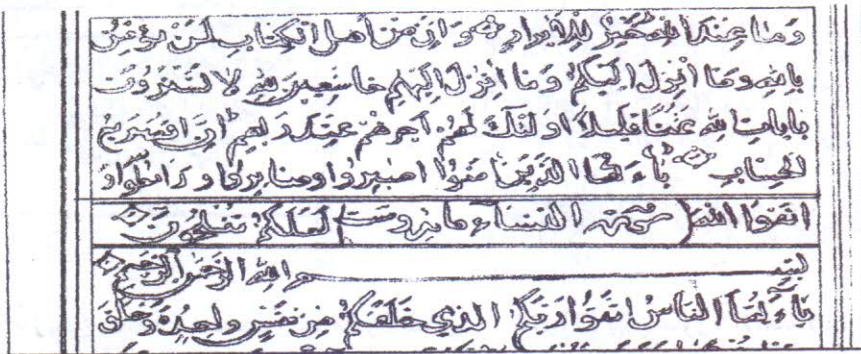 وما عند الله خير للابرار وان من أهل الكتاب لمن يؤمن
بالله وما أنزل اليكم وما أنزل اليهم خاشعين لله لا يشترون
بايات الله ثمنا قليلا اولئك لهم اجرهم عند ربهم ان الله سريع
الحساب يا ايها الذين ءامنوا اصبروا وصابروا ورابطوا و
اتقوا الله لعلكم تفلحون سورة النساء
بسم الله الرحمن الرحيم
يا ايها الناس اتقوا ربكم الذي خلقكم من نفس واحدة وخلق